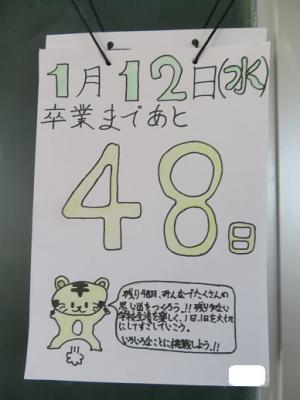 1月12日(水)
卒業まであと
48日
残り48日、みんなでたくさんの
思い出をつくろう!!残り少ない
学校生活を楽しく、1日1日を大切
にしてすごしていこう。
いろいろなことに挑戦しよう!!